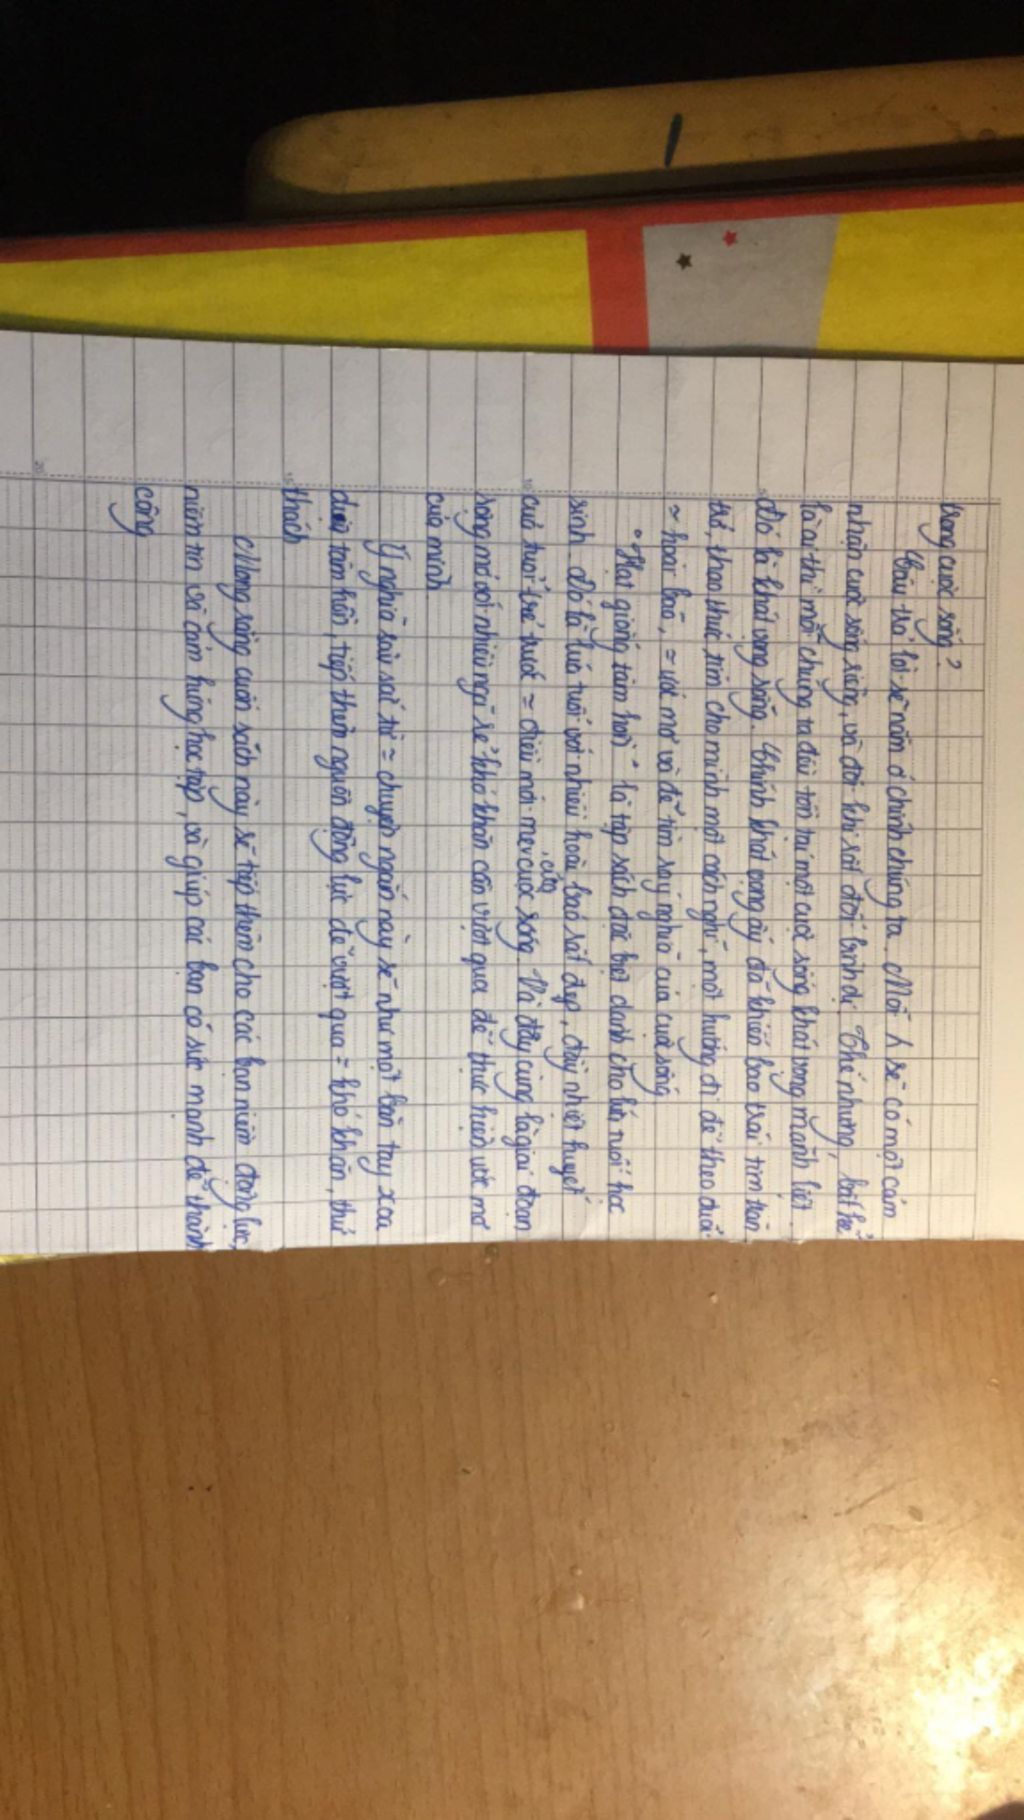 trong cuộc sống?
Câu trả lời sẽ nằm ở chính chúng ta. Mỗi λ sẽ có một cảm
nhận cuộc sống riêng, và đôi khi rất đỗi bình dị. Thế nhưng, bất kể
là ai thì mỗi chúng ta đều tồn tại một cuộc sống khát vọng mãnh liệt.
Đó là khát vọng sống. Chính khát vọng ấy đã khiến bao trái tim trăn
trở, thao thức tìm cho mình một cách nghĩ, một hướng đi để theo đuổi
≈ hoài bão, ≈ ước mơ và để tìm ra ý nghĩa của cuộc sống
"Hạt giống tâm hồn" là tập sách đặc biệt dành cho lứa tuổi học
sinh. Đó là lứa tuổi với nhiều hoài bão rất đẹp, đầy nhiệt huyết
của tuổi trẻ trước ≈ điều mới mẻ của cuộc sống. Và đây cũng là giai đoạn
sóng gió với nhiều ngã rẽ khó khăn cần vượt qua để thực hiện ước mơ
của mình
Ý nghĩa sâu sắc từ ≈ chuyện ngắn này sẽ như một bàn tay xoa
dịu tâm hồn, tiếp thêm nguồn động lực để vượt qua ≈ khó khăn, thử
15 thách
Mong rằng cuốn sách này sẽ tiếp thêm cho các bạn niềm động lực,
niềm tin và cảm hứng học tập, và giúp các bạn có sức mạnh để thành
công
20